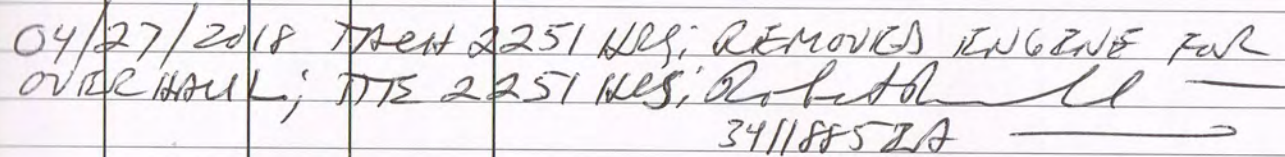 04/27/2018 TACH 2251 HRS; REMOVED ENGINE FOR
OVERHAUL; TTE 2251 HRS;
3411885IA